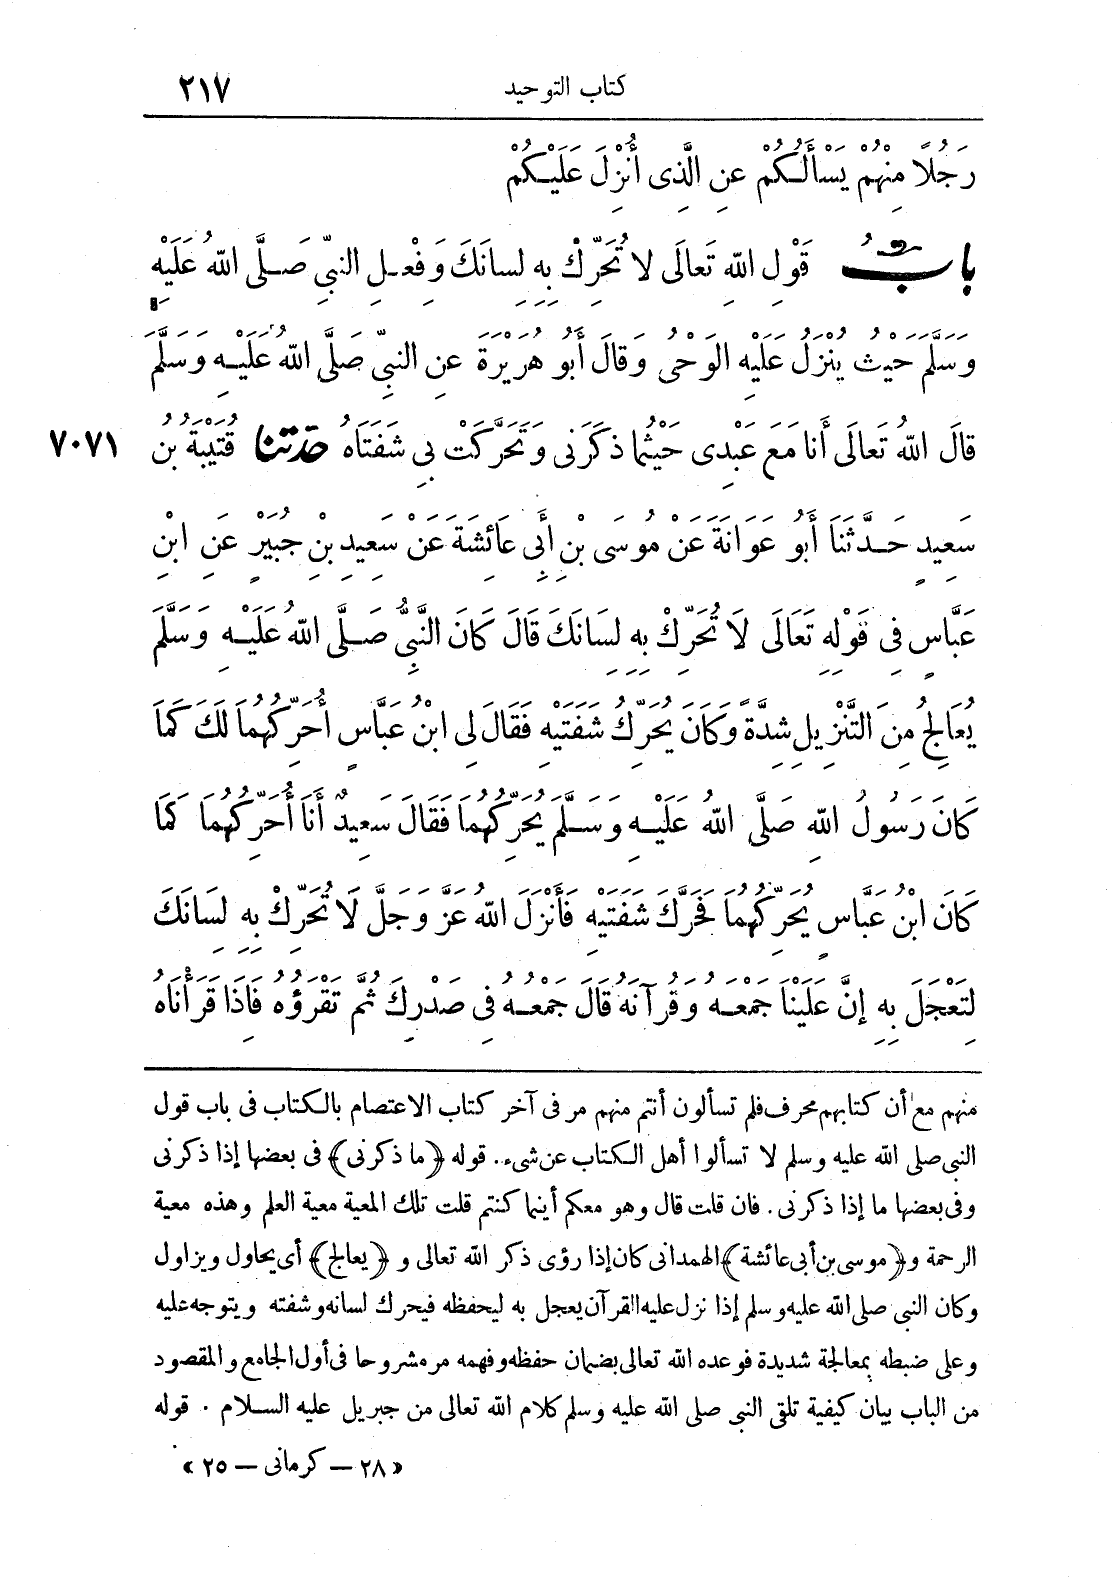 كتاب التوحيد ٢١٧
رَجُلًا مِنْهُمْ يَسْأَلُكُمْ عَنِ الَّذِى أُنْزِلَ عَلَيْكُمْ
بابُ قَوْلِ اللهِ تَعَالَى لا تُحَرِّكْ بِهِ لِسانَكَ وَفِعْلِ النبيِّ صَلَّى اللهُ عَلَيْهِ
وَسَلَّمَ حَيْثُ يُنْزَلُ عَلَيْهِ الوَحْىُ وَقالَ أَبُو هُرَيْرَةَ عَنِ النبيِّ صَلَّى اللهُ عَلَيْهِ وَسَلَّمَ
قالَ اللهُ تَعَالَى أَنا مَعَ عَبْدِى حَيْثُما ذَكَرَنِى وَتَحَرَّكَتْ بِى شَفَتَاهُ حدثنا قُتَيْبَةُ بن ٧٠٧١
سَعِيدٍ حَدَّثَنَا أَبُو عَوَانَةَ عَنْ مُوسَى بْنِ أَبِى عَائِشَةَ عَنْ سَعِيدِ بْنِ جُبَيْرٍ عَنِ ابْنِ
عَبَّاسٍ فِى قَوْلِهِ تَعَالَى لَا تُحَرِّكْ بِهِ لِسَانَكَ قَالَ كَانَ النَّبِىُّ صَلَّى اللهُ عَلَيْهِ وَسَلَّمَ
يُعَالِجُ مِنَ التَّنْزِيلِ شِدَّةً وَكَانَ يُحَرِّكُ شَفَتَيْهِ فَقَالَ لِى ابْنُ عَبَّاسٍ أُحَرِّكُهُمَا لَكَ كَمَا
كَانَ رَسُولُ اللهِ صَلَّى اللهُ عَلَيْهِ وَسَلَّمَ يُحَرِّكُهُمَا فَقَالَ سَعِيدٌ أَنَا أُحَرِّكُهُمَا كَمَا
كَانَ ابْنُ عَبَّاسٍ يُحَرِّكُهُمَا فَحَرَّكَ شَفَتَيْهِ فَأَنْزَلَ اللهُ عَزَّ وَجَلَّ لَا تُحَرِّكْ بِهِ لِسَانَكَ
لِتَعْجَلَ بِهِ إِنَّ عَلَيْنَا جَمْعَهُ وَقُرْآنَهُ قَالَ جَمْعُهُ فِى صَدْرِكَ ثُمَّ تَقْرَؤُهُ فَاِذَا قَرَأْنَاهُ
منهم مع أن كتابهم محرف فلم تسألون أنتم منهم مر فى آخر كتاب الاعتصام بالكتاب فى باب قول
النبى صلى الله عليه وسلم لا تسألوا أهل الكتاب عن شىء. قوله ﴿ما ذكرنى﴾ فى بعضها إذا ذكرنى
وفى بعضها ما إذا ذكرنى. فان قلت قال وهو معكم أينما كنتم قلت تلك المعية معية العلم وهذه معية
الرحمة و﴿موسى بن أبى عائشة﴾ الهمدانى كان إذا رؤى ذكر الله تعالى و ﴿يعالج﴾ أى يحاول ويزاول
وكان النبى صلى الله عليه وسلم إذا نزل عليه القرآن يعجل به ليحفظه فيحرك لسانه وشفته ويتوجه عليه
وعلى ضبطه بمعالجة شديدة فوعده الله تعالى بضمان حفظه وفهمه مر مشروحا فى أول الجامع والمقصود
من الباب بيان كيفية تلقى النبى صلى الله عليه وسلم كلام الله تعالى من جبريل عليه السلام . قوله
« ٢٨ – كرمانى – ٢٥ »